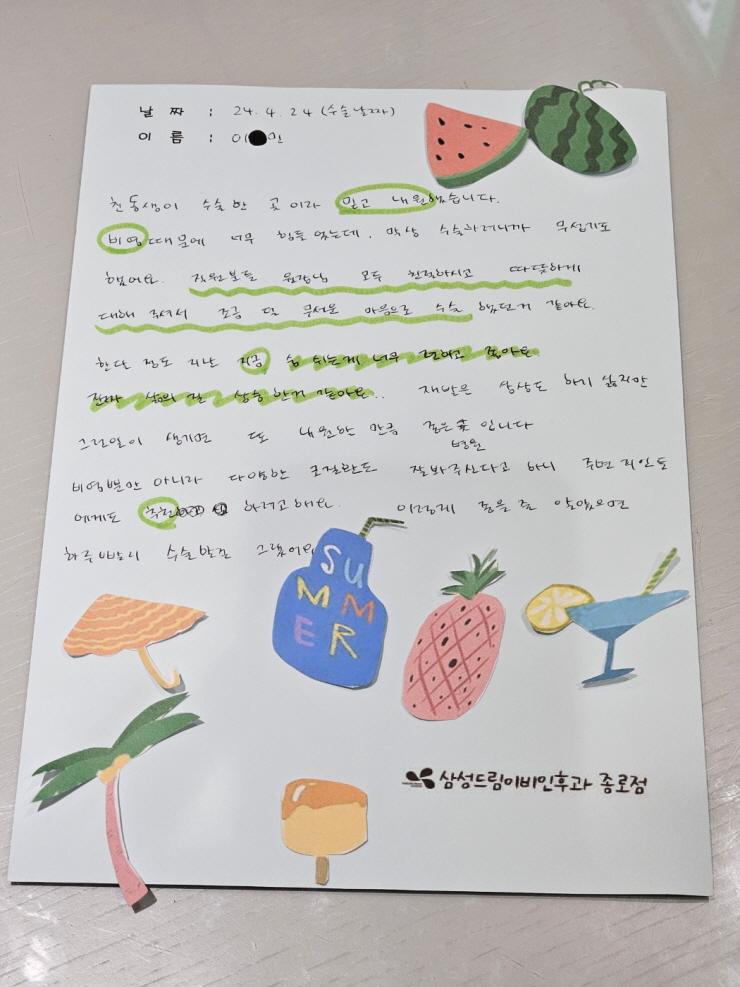 날 짜 : 24. 4. 24 (수술날짜)
이 름 : 이●민
친동생이 수술한 곳이라 믿고 내원했습니다.
비염때문에 너무 힘들었는데, 막상 수술하려니까 무섭기도
했어요. 직원분들 원장님 모두 친절하시고 따뜻하게
대해 주셔서 조금 덜 무서운 마음으로 수술 했던거 같아요.
한달 정도 지난 지금 숨 쉬는게 너무 편하고 좋아요
진짜 삶의 질 상승한거 같아요.. 재발은 상상도 하기 싫지만
그런일이 생기면 또 내원할 만큼 좋은 곳 입니다
병원
비염뿐만 아니라 다양한 코질환도 잘봐주신다고 하니 주변 지인들
에게도 추천 하려고 해요. 이렇게 좋을 줄 알았으면
하루 빨리 수술받을 그랬어요
SUMMER
삼성드림이비인후과 종로점